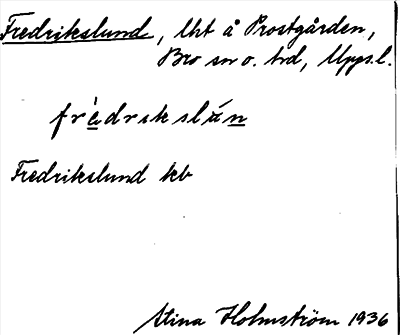 Fredrikslund, lht å Prostgården,
Bro sn o. hd, Upps.l.
frèdrikslún
Fredrikslund kb
Stina Holmström 1936